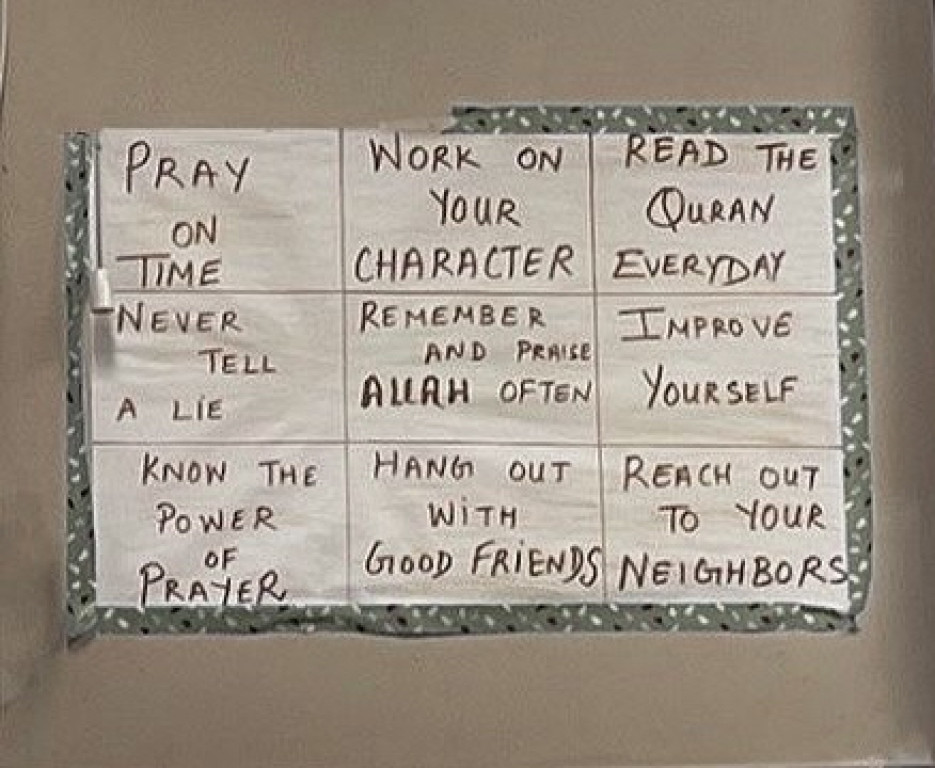 PRAY
ON
TIME
WORK ON
YOUR
CHARACTER
READ THE
QURAN
EVERYDAY
NEVER
TELL
A LIE
REMEMBER
AND PRAISE
ALLAH OFTEN
IMPROVE
YOURSELF
KNOW THE
POWER
OF
PRAYER
HANG OUT
WITH
GOOD FRIENDS
REACH OUT
TO YOUR
NEIGHBORS